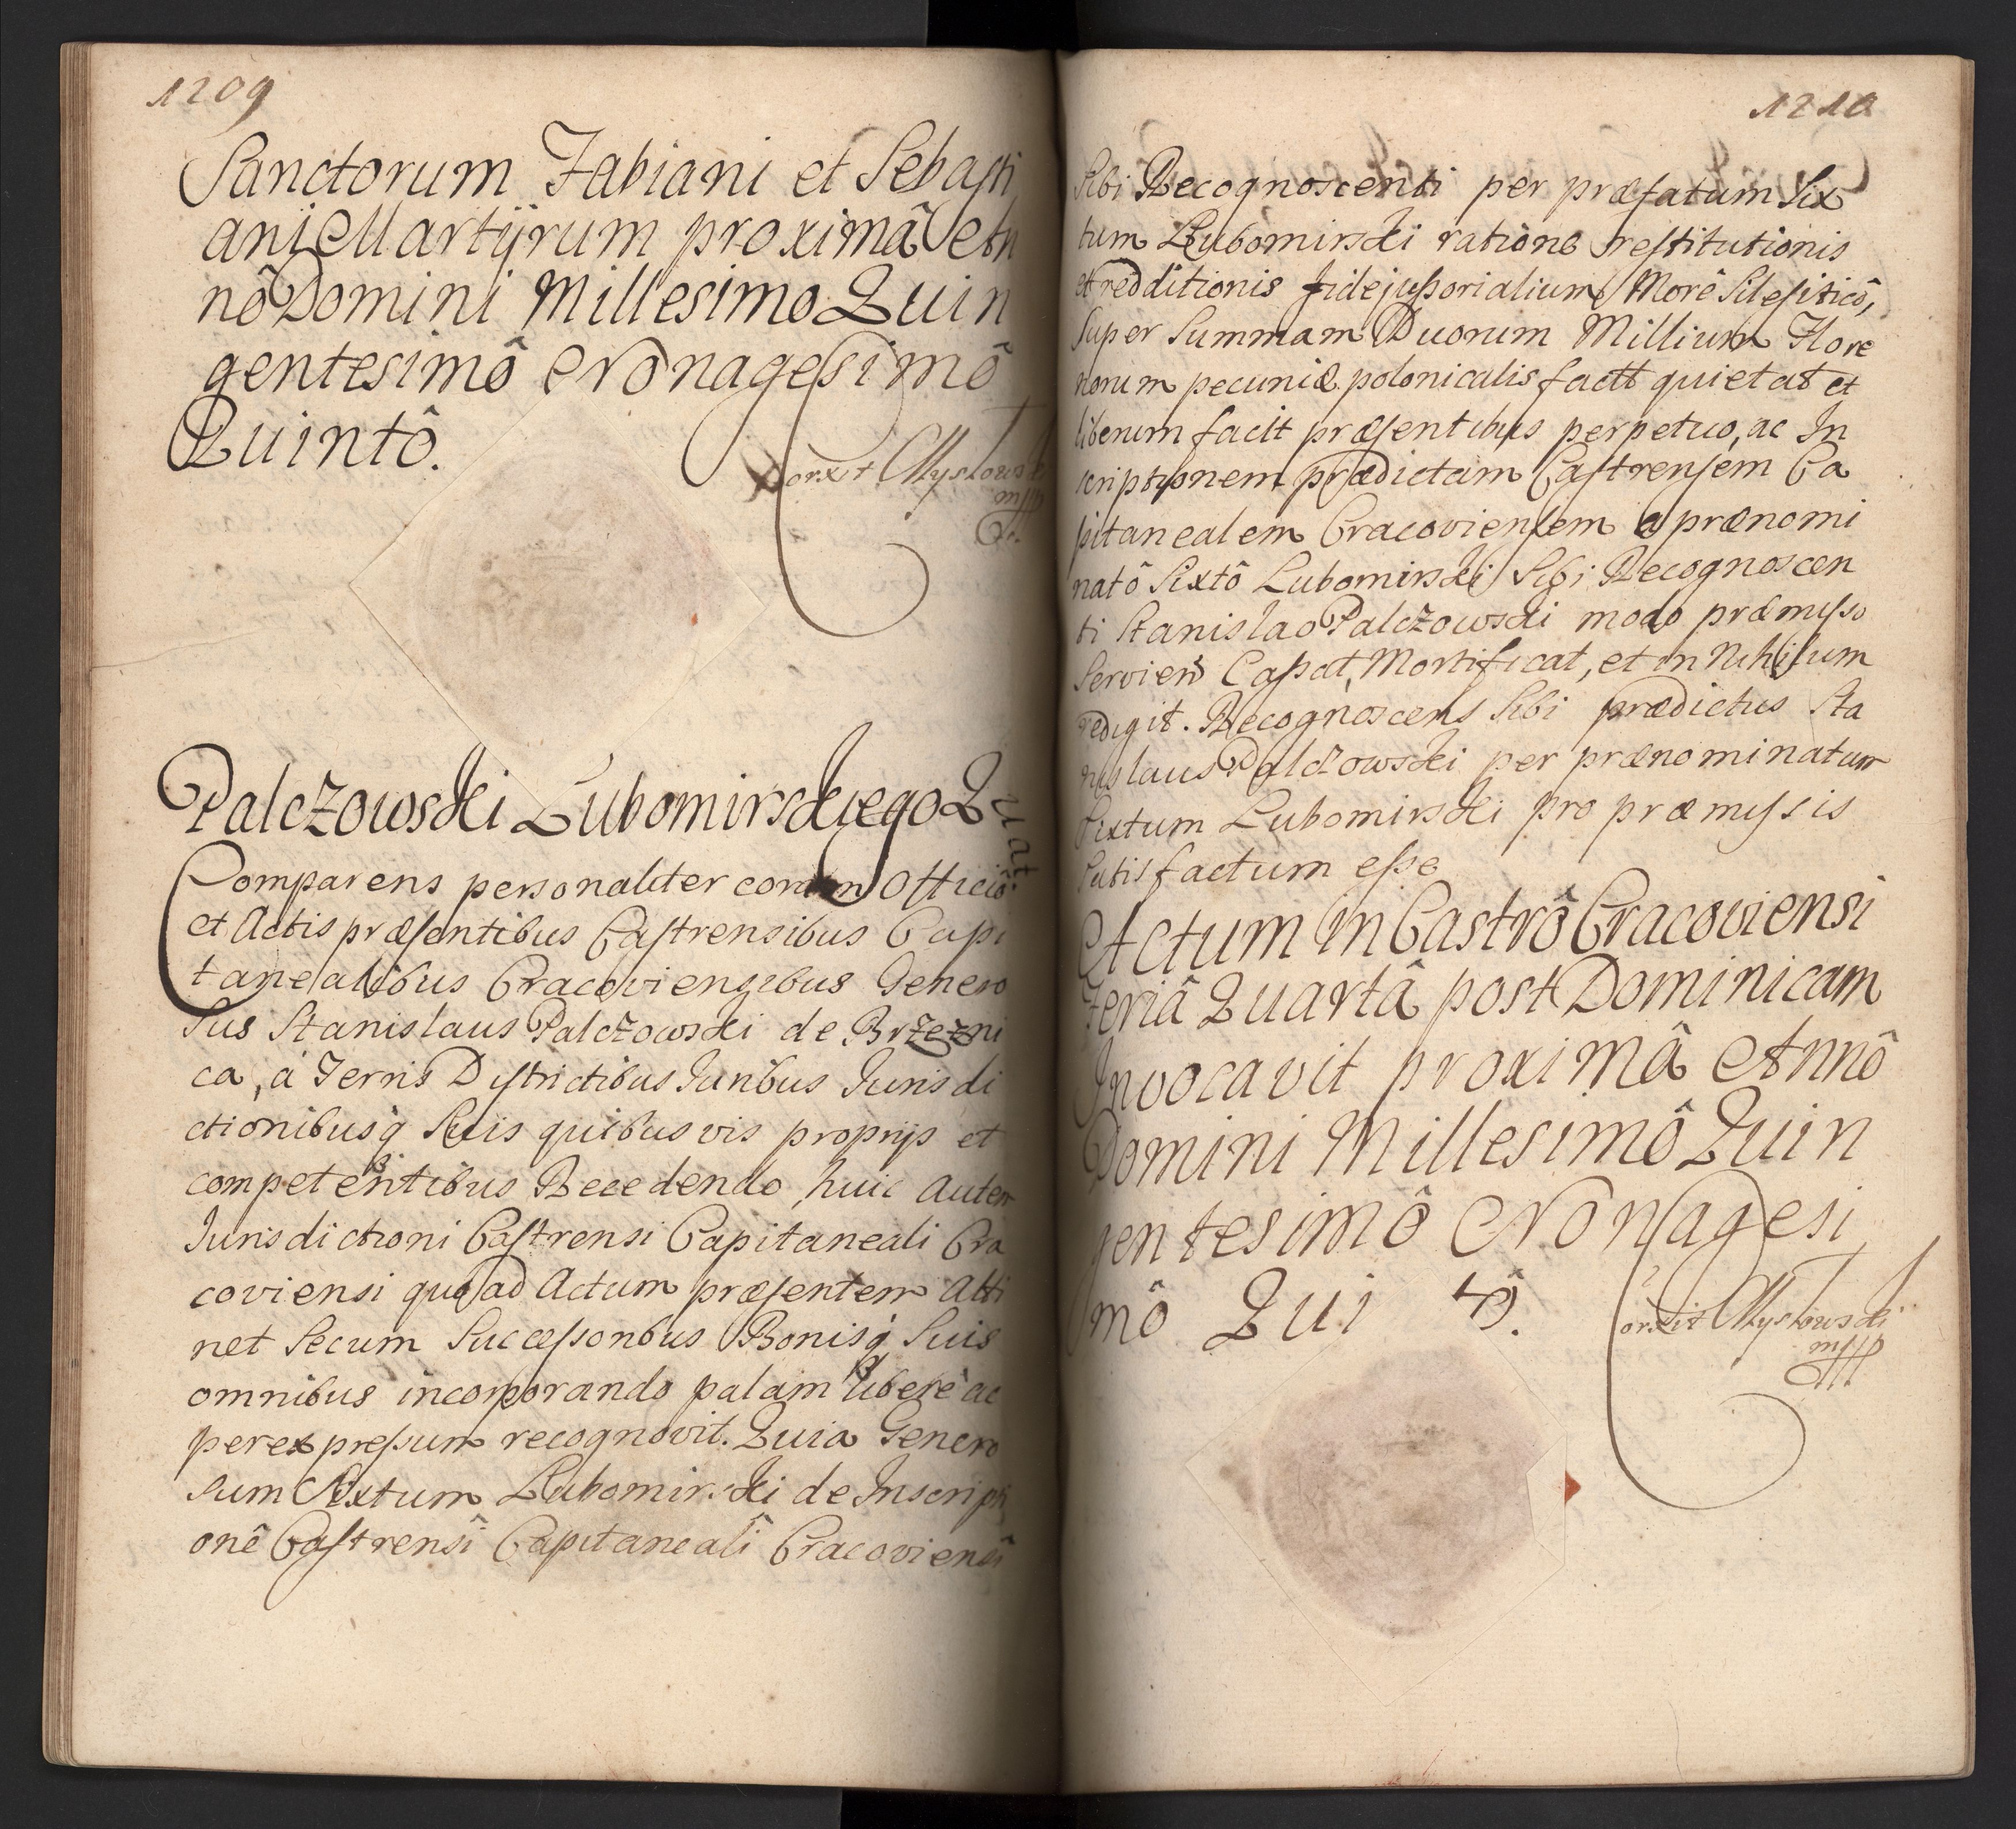 1209
Sanctorum Fabiani et Sebasti
ani Martÿrum proximâ An
nô Domini Millesimo Quin
gentesimô Nonagesimô
Quintô.
Porxit Mysłowski
mpp
Palczowski Lubomirskiego Quiat
Comparens personaliter coram Officiô
et Actis præsentibus Castrensibus Capi
tanealibus Cracoviensibus Genero
sus Stanislaus Palczowski de Brzezni
ca, à Terris Districtibus Juribus Jurisdi
ctionibusq̀ Suis quibusvis proprijs et
competentibus Recedendo, huic Autem
Jurisdictioni Castrensi Capitaneali Cra
coviensi quo ad Actum præsentem Atti
net Secum Successoribus Bonisq̀ Suis
omnibus incorporando palam liberè ac
per expressum recognovit. Quia Genero
sum Sixtum Lubomirski de Inscripti
onê Castrensî Capitanealî Cracoviensî
1210
Sibi Recognoscenti per præfatum Six
tum Lubomirski ratione restitutionis
et redditionis fidejussorialium Morê Silesiticô,
Super Summam Duorum Millium Flore
norum pecuniæ polonicalis factt quietat et
liberum facit præsentibus perpetuo, ac In
scriptionem prædictam Castrensem Ca
pitanealem Cracoviensem a prænomi
natô Sixtô Lubomirski Sibi Recognoscen
ti Stanislao Palczowski modo præmisso
Servien Cassat, Mortificat, et in Nihilum
redigit. Recognoscens Sibi prædictus Sta
nislaus Palczowski per prænominatum
Sixtum Lubomirski pro præmissis
Satisfactum esse
Actum in Castrô Cracoviensi
feriâ Quartâ post Dominicam
Invocavit proximâ Annô
Domini Millesimô Quin
gentesimô Nonagesi
mô Qui tô.
Porxit Mysłowski
mpp